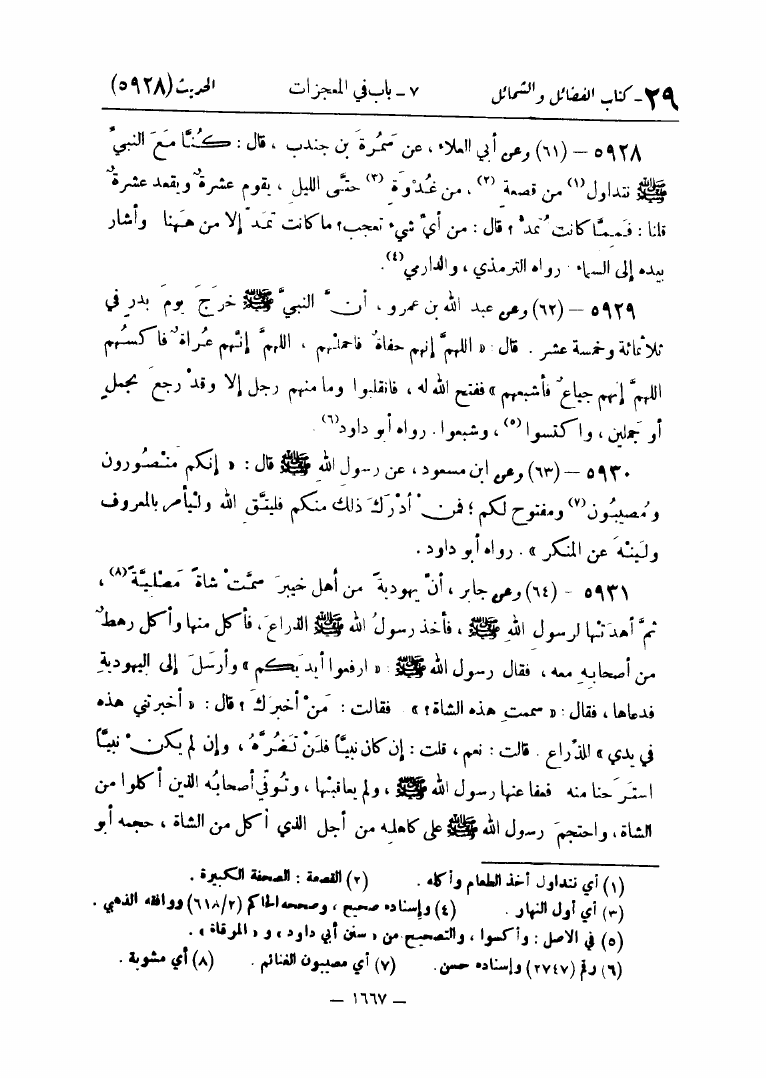 ٢٩- كتاب الفضائل والشمائل ٧ - باب في المعجزات الحديث (٥٩٢٨)
٥٩٢٨ - (٦١) وعن أبي العلاء، عن سَمُرةَ بن جندب، قال: كُنَّا مَعَ النبيِّ
ﷺ نتداول(١) من قصعة(٢)، من غُدْوَةٍ(٣) حتَّى الليلِ، يقوم عشرةٌ ويقعد عشرةٌ
قلنا: فَمِمَّا كانت تُمَدُّ؟ قال: من أيِّ شيءٍ تعجب؟ ما كانت تمَدُّ إلا من ههنا وأشار
بيده إلى السماء. رواه الترمذي، والدارمي(٤).
٥٩٢٩ - (٦٢) وعن عبد الله بن عمرو، أنَّ النبيَّ ﷺ خرَجَ يومَ بدرٍ في
ثلاثمائة وخمسة عشر. قال: «اللهمَّ إنهم حفاةٌ فاحملهم، اللهمَّ إنهم عُراةٌ فاكسُهم
اللهمَّ إنهم جياعٌ فأشبعهم» ففتح الله له، فانقلبوا وما منهم رجل إلا وقدْ رجعَ بجملٍ
أو جملين، واكتسوا(٥)، وشبعوا. رواه أبو داود(٦).
٥٩٣٠ - (٦٣) وعن ابن مسعود، عن رسولِ اللهِ ﷺ قال: «إنكم مَنْصُورون
ومُصيبُون(٧) ومفتوح لكم؛ فمنْ أدْرَكَ ذلك منكم فليتَّقِ الله ولْيأمر بالمعروف
ولينْهَ عن المنكر». رواه أبو داود.
٥٩٣١ - (٦٤) وعن جابر، أنَّ يهوديةً من أهل خيبرَ سمَّتْ شاةً مَصْليَّةً(٨)،
ثمَّ أهدَتْها لرسولِ اللهِ ﷺ، فأخذ رسولُ الله ﷺ الذراعَ، فأكل منها وأكل رهطٌ
من أصحابِهِ معه، فقال رسول الله ﷺ: «ارفعوا أيديَكم» وأرسَلَ إلى اليهوديةِ
فدعاها، فقال: «سممتِ هذه الشاةَ؟» فقالت: مَنْ أخبرَكَ؟ قال: «أخبرتني هذه
في يدي» للذّراع. قالت: نعم، قلت: إن كان نبيًّا فلَنْ تضُرَّهُ، وإن لم يكنْ نبيًّا
استرَحنا منه فعفا عنها رسول الله ﷺ، ولم يعاقبْها، وتُوفّي أصحابُه الذين أكلوا من
الشاة، واحتجمَ رسول الله ﷺ على كاهلِه من أجل الذي أكل من الشاة، حجمه أبو
(١) أي نتداول أخذ الطعام وأكله. (٢) القصعة: الصحفة الكبيرة.
(٣) أي أول النهار. (٤) وإسناده صحيح، وصححه الحاكم (٦١٨/٢) ووافقه الذهبي.
(٥) في الاصل: وأكسوا، والتصحيح من «سنن أبي داود» و«المرقاة».
(٦) رقم (٢٧٤٧) وإسناده حسن. (٧) أي مصيبون الغنائم. (٨) أي مشوية.
— ١٦٦٧ —